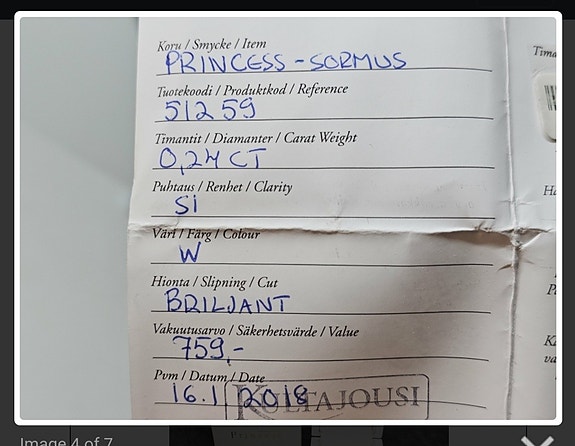 Koru / Smycke / Item
PRINCESS-SORMUS
Tuotekoodi / Produktkod / Reference
51259
Timantit / Diamanter / Carat Weight
0,24 CT
Puhtaus / Renhet / Clarity
Si
Väri / Färg / Colour
W
Hionta / Slipning / Cut
BRILJANT
Vakuutusarvo / Säkerhetsvärde / Value
759,-
Pvm / Datum / Date
16.1 2018
KULTAJOUSI
Image 4 of 7